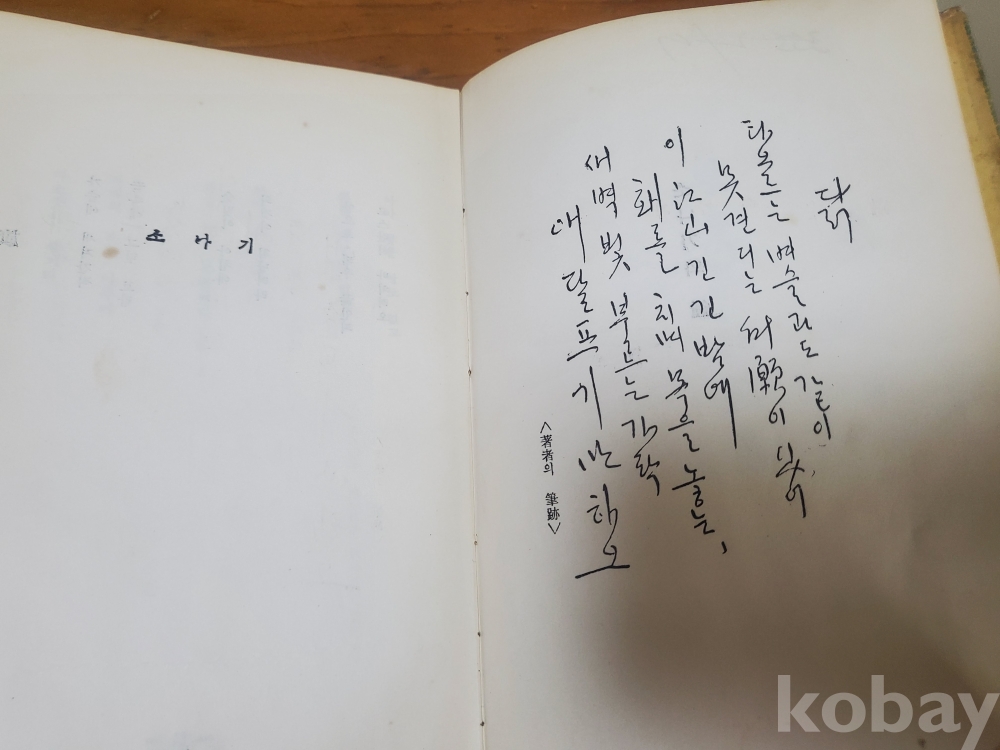 소나기
닭
타오르는 벼슬과도 같이,
못견디는 所願이 있어
이 江山 긴긴 밤에
홰를 치며 목을 놓는,
새벽 빛 부르는 가락
애달프기만 하오
<著者의 筆跡>
kobay